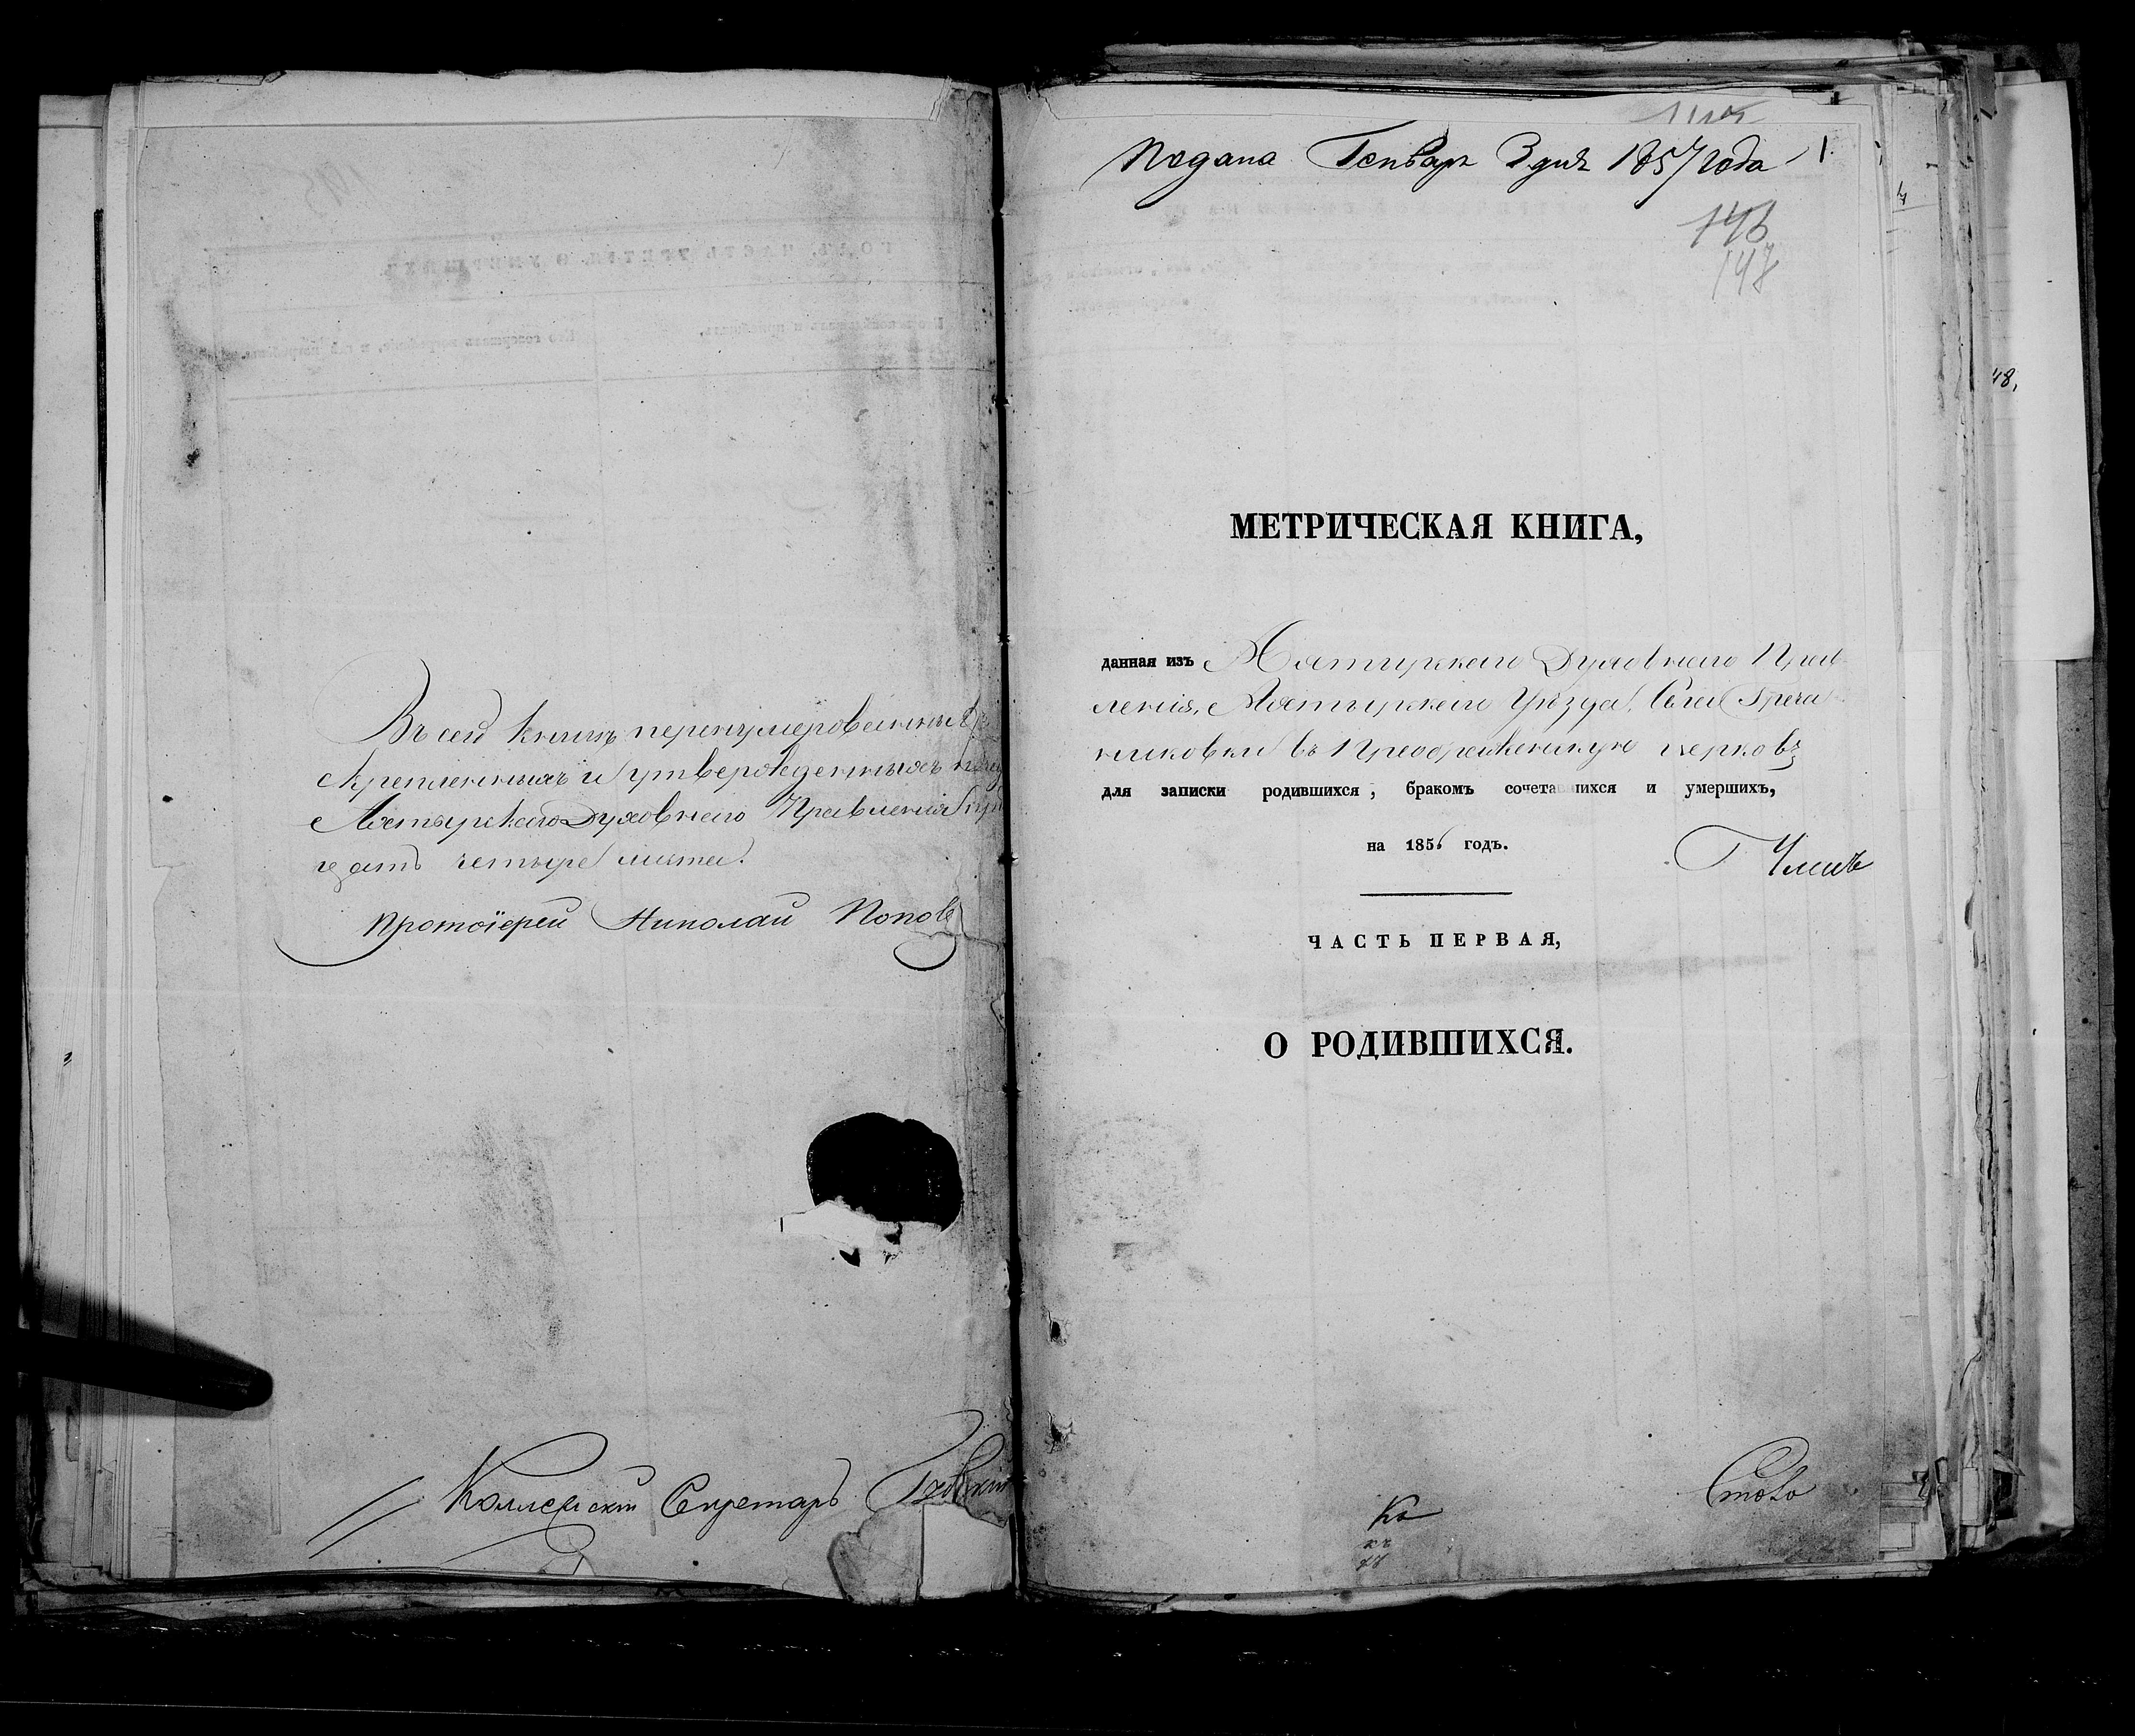 Въ сей книгѣ перенумерованныхъ,
скрепленныхъ и утвержденныхъ
Алатырскаго Духовнаго Правленія
цать четыре листа.
Протоіерей Николай Попов
Коллежскій Секретарь
Подана Генваря 3 дня 1857 года 1.
146
147
48,
МЕТРИЧЕСКАЯ КНИГА,
данная изъ Алатырскаго Духовнаго Прав
ленія, Алатырскаго Уѣзда, Села Гречи
никовки въ Преображенскую церковь
для записки родившихся, бракомъ сочета шихся и умершихъ,
на 1856 годъ.
Членъ
ЧАСТЬ ПЕРВАЯ,
О РОДИВШИХСЯ.
Ко